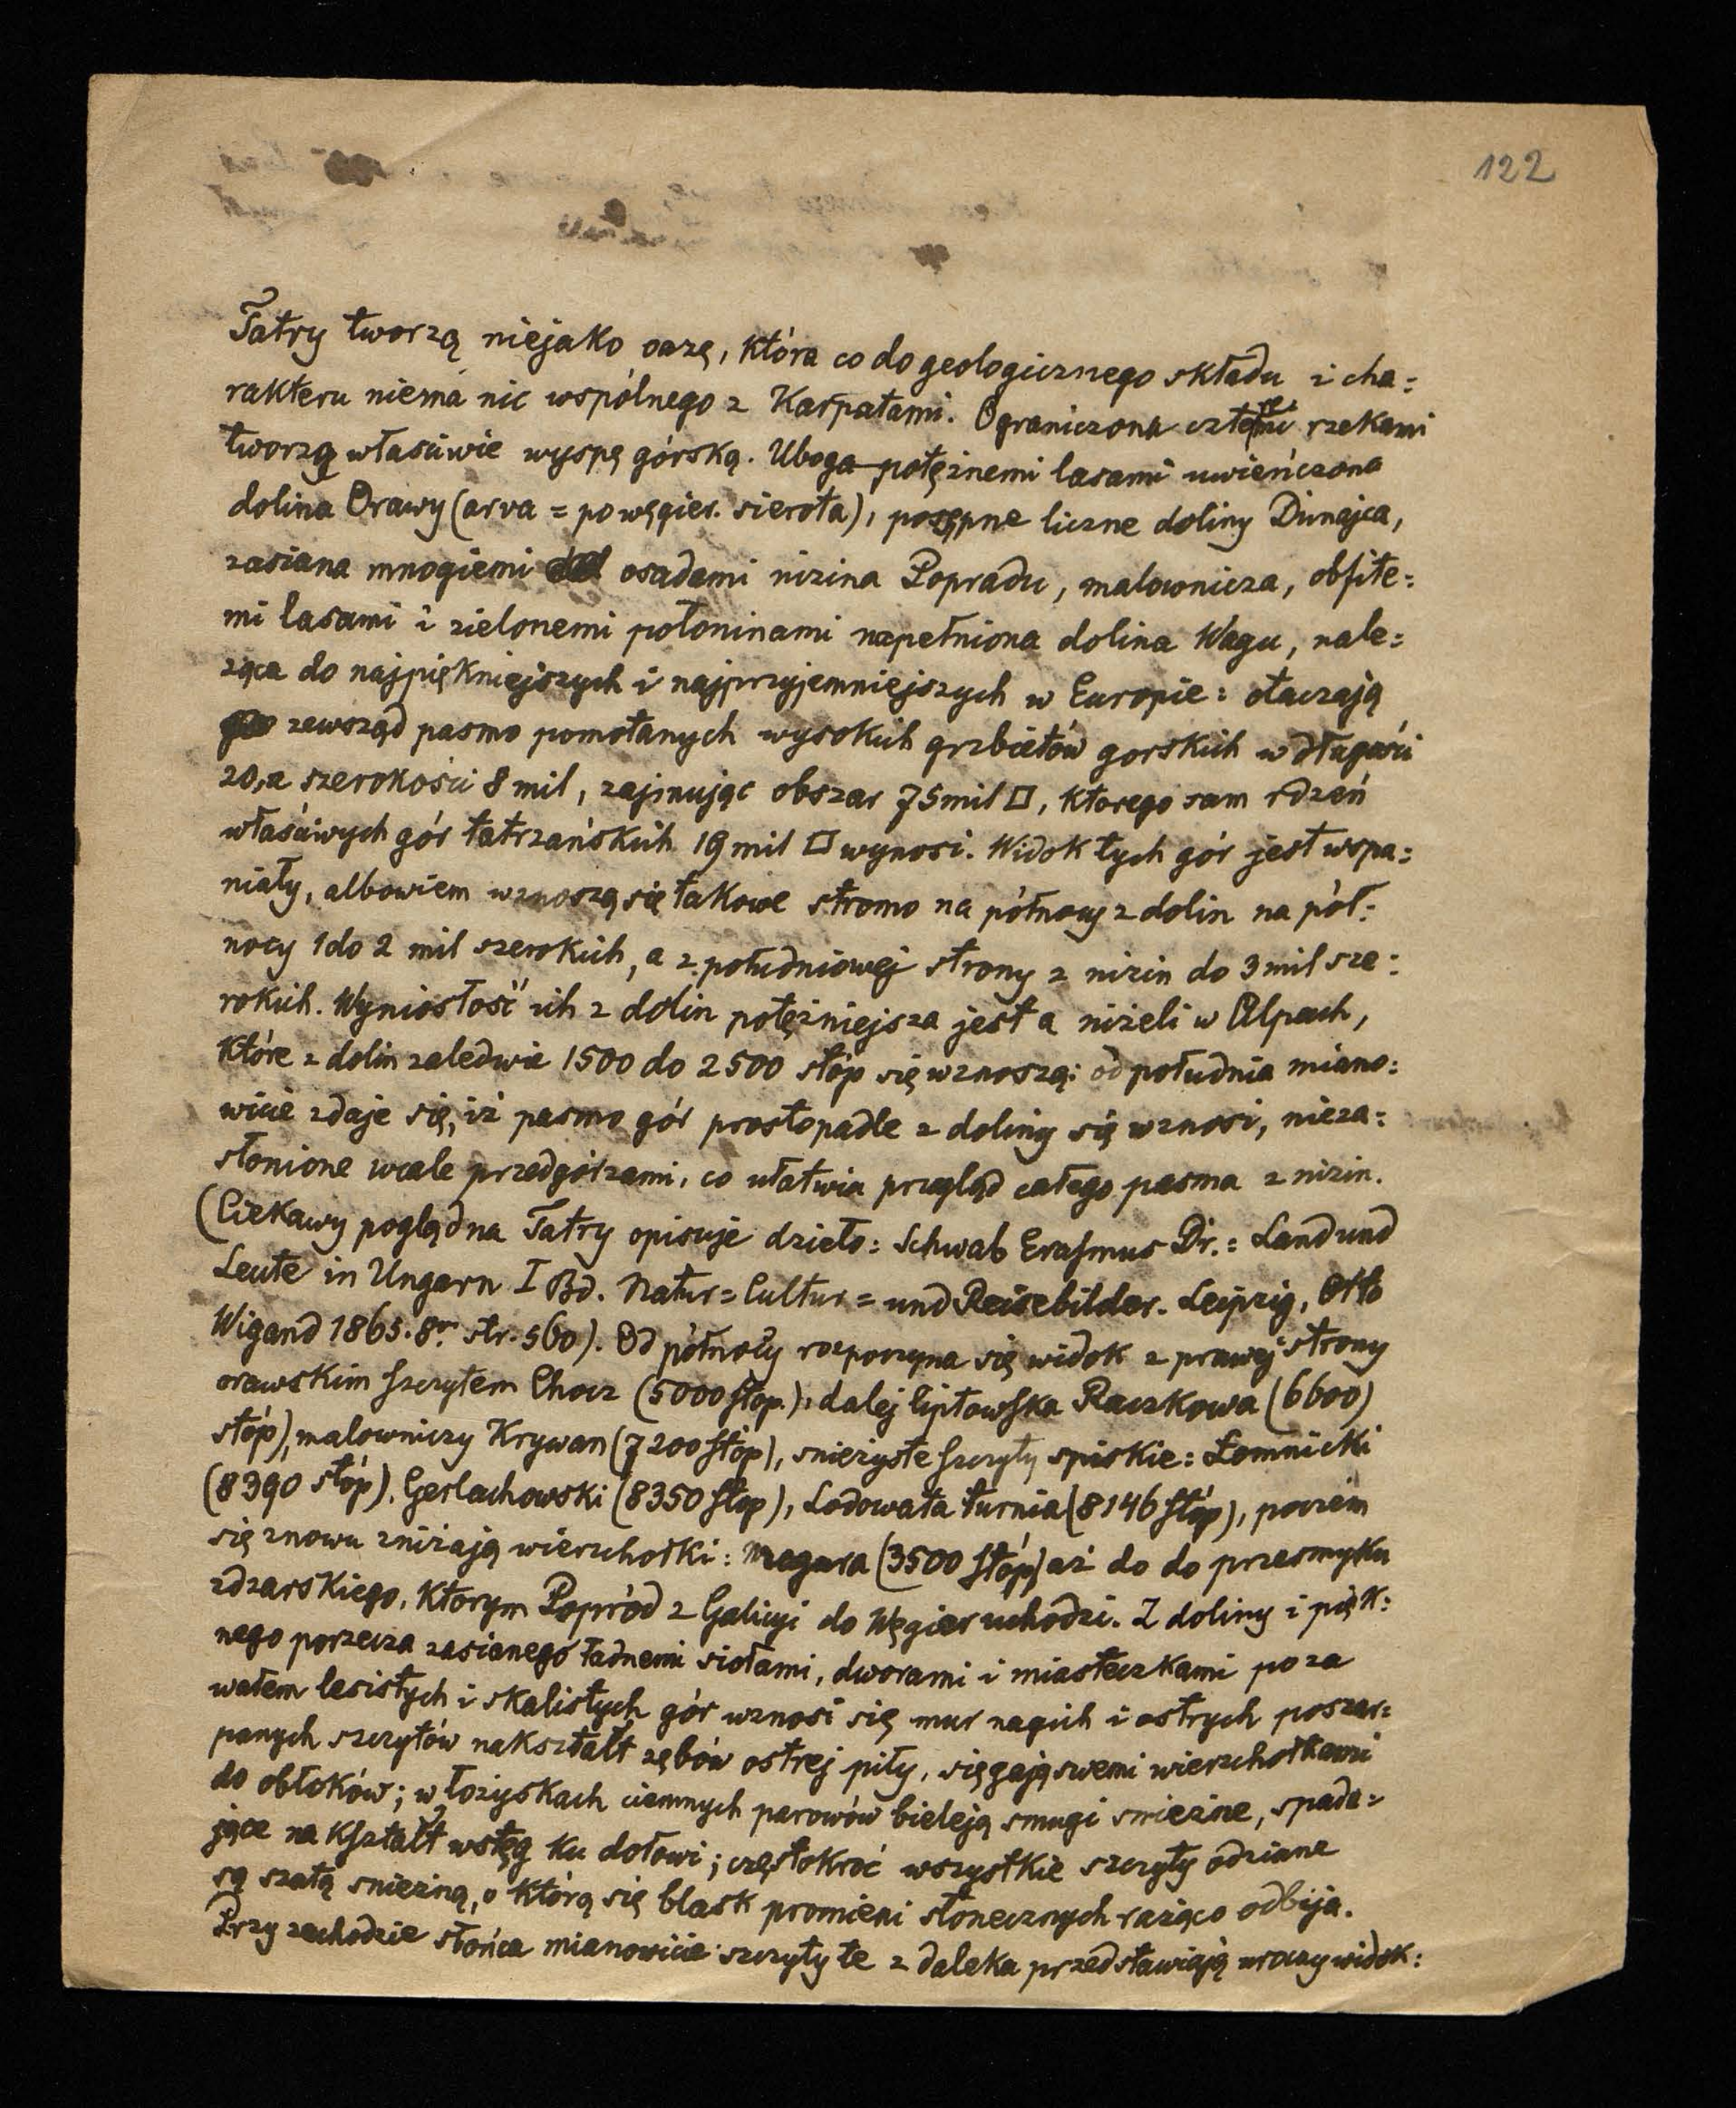 122
Tatry tworzą niejako oazę, która co do geologicznego składu i cha=
rakteru niema nic wspólnego z Karpatami. Ograniczona czterma rzekami
tworzą właściwie wyspę górską. Uboga potężnemi lasami uwieńczona
dolina Orawy (arva = po węgier. sierota), posępne liczne doliny Dunajca,
zasiana mnogiemi osadami nizina Popradu, malownicza, obfite=
mi lasami i zielonemi połoninami napełniona dolina Wagu, nale=
żąca do najpiękniejszych i najprzyjemniejszych w Europie: otaczają
zewsząd pasmo pomotanych wysokich grzbietów gorskich w długości
20, a szerokości 8 mil, zajmując obszar 75 mil □, którego sam rdzeń
właściwych gór tatrzańskich 19 mil □ wynosi. Widok tych gór jest wspa=
niały, albowiem wznoszą się takowe stromo na północy z dolin na pół=
nocy 1 do 2 mil szerokich, a z południowej strony z nizin do 3 mil sze=
rokich. Wyniosłość ich z dolin potężniejsza jest a niżeli w Alpach,
które z dolin zaledwie 1500 do 2500 stóp się wznoszą: od południa miano=
wicie zdaje się, iż pasmo gór prostopadle z doliny się wznosi, nieza=
słonione wcale przedgórzami, co ułatwia przegląd całego pasma z nizin.
(Ciekawy pogląd na Tatry opisuje dzieło: Schwab Erasmus Dr.: Land und
Leute in Ungarn I Bd. Natur= Cultur= und Reisebilder. Leipzig, Otto
Wigand 1865. 8vo str. 560). Od północy rozpoczyna się widok z prawej strony
orawskim szczytem Chocz (5000 stop), dalej liptowska Raczkowa (6600)
stóp), malowniczy Krywan (7200 stóp), snieżyste szczyty spiskie: Łomnicki
(8390 stóp), Gerlachowski (8350 stop), Lodowata turnia (8146 stóp), poczem
się znowu zniżają wierzchołki: Magura (3500 stóp) aż do do przesmyku
zdzarskiego, ktorym Popród z Galicyi do Węgier uchodzi. Z doliny i pięk=
nego porzecza zasianego ładnemi siołami, dworami i miasteczkami poza
wałem lesistych i skalistych gór wznosi się mur nagich i ostrych poszar=
panych szczytów nakształt zębów ostrej piły, sięgają swemi wierzchołkami
do obłoków; w łożyskach ciemnych parowów bieleją smugi snieżne, spada=
jące na kształt wstęg ku dołowi; częstokroć wszystkie szczyty odziane
są szatą snieżną, o którą się blask promieni słonecznych rażąco odbija.
Przy zachodzie słońca mianowicie szczyty te z daleka przedstawiają uroczy widok: